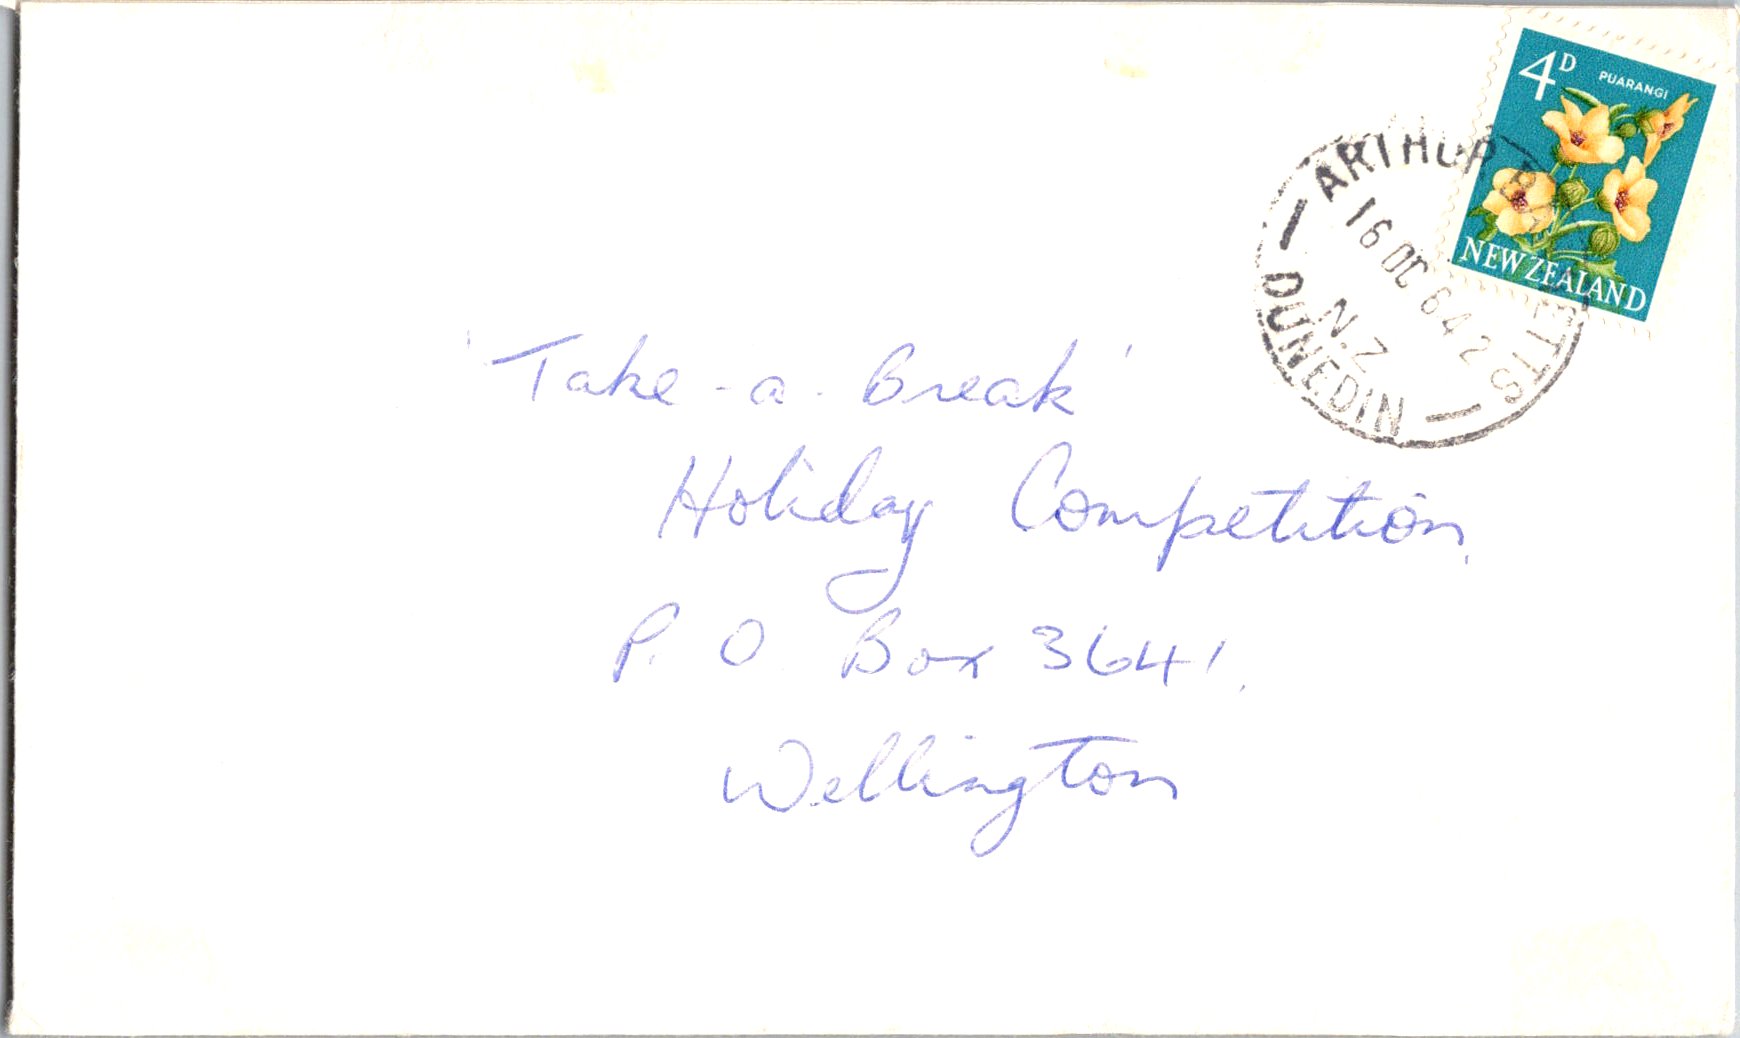 4D
PUARANGI
NEW ZEALAND
ARTHUR
16 OC 64 2
N.Z
DUNEDIN
'Take-a-Break'
Holiday Competition,
P. O. Box 3641.
Wellington